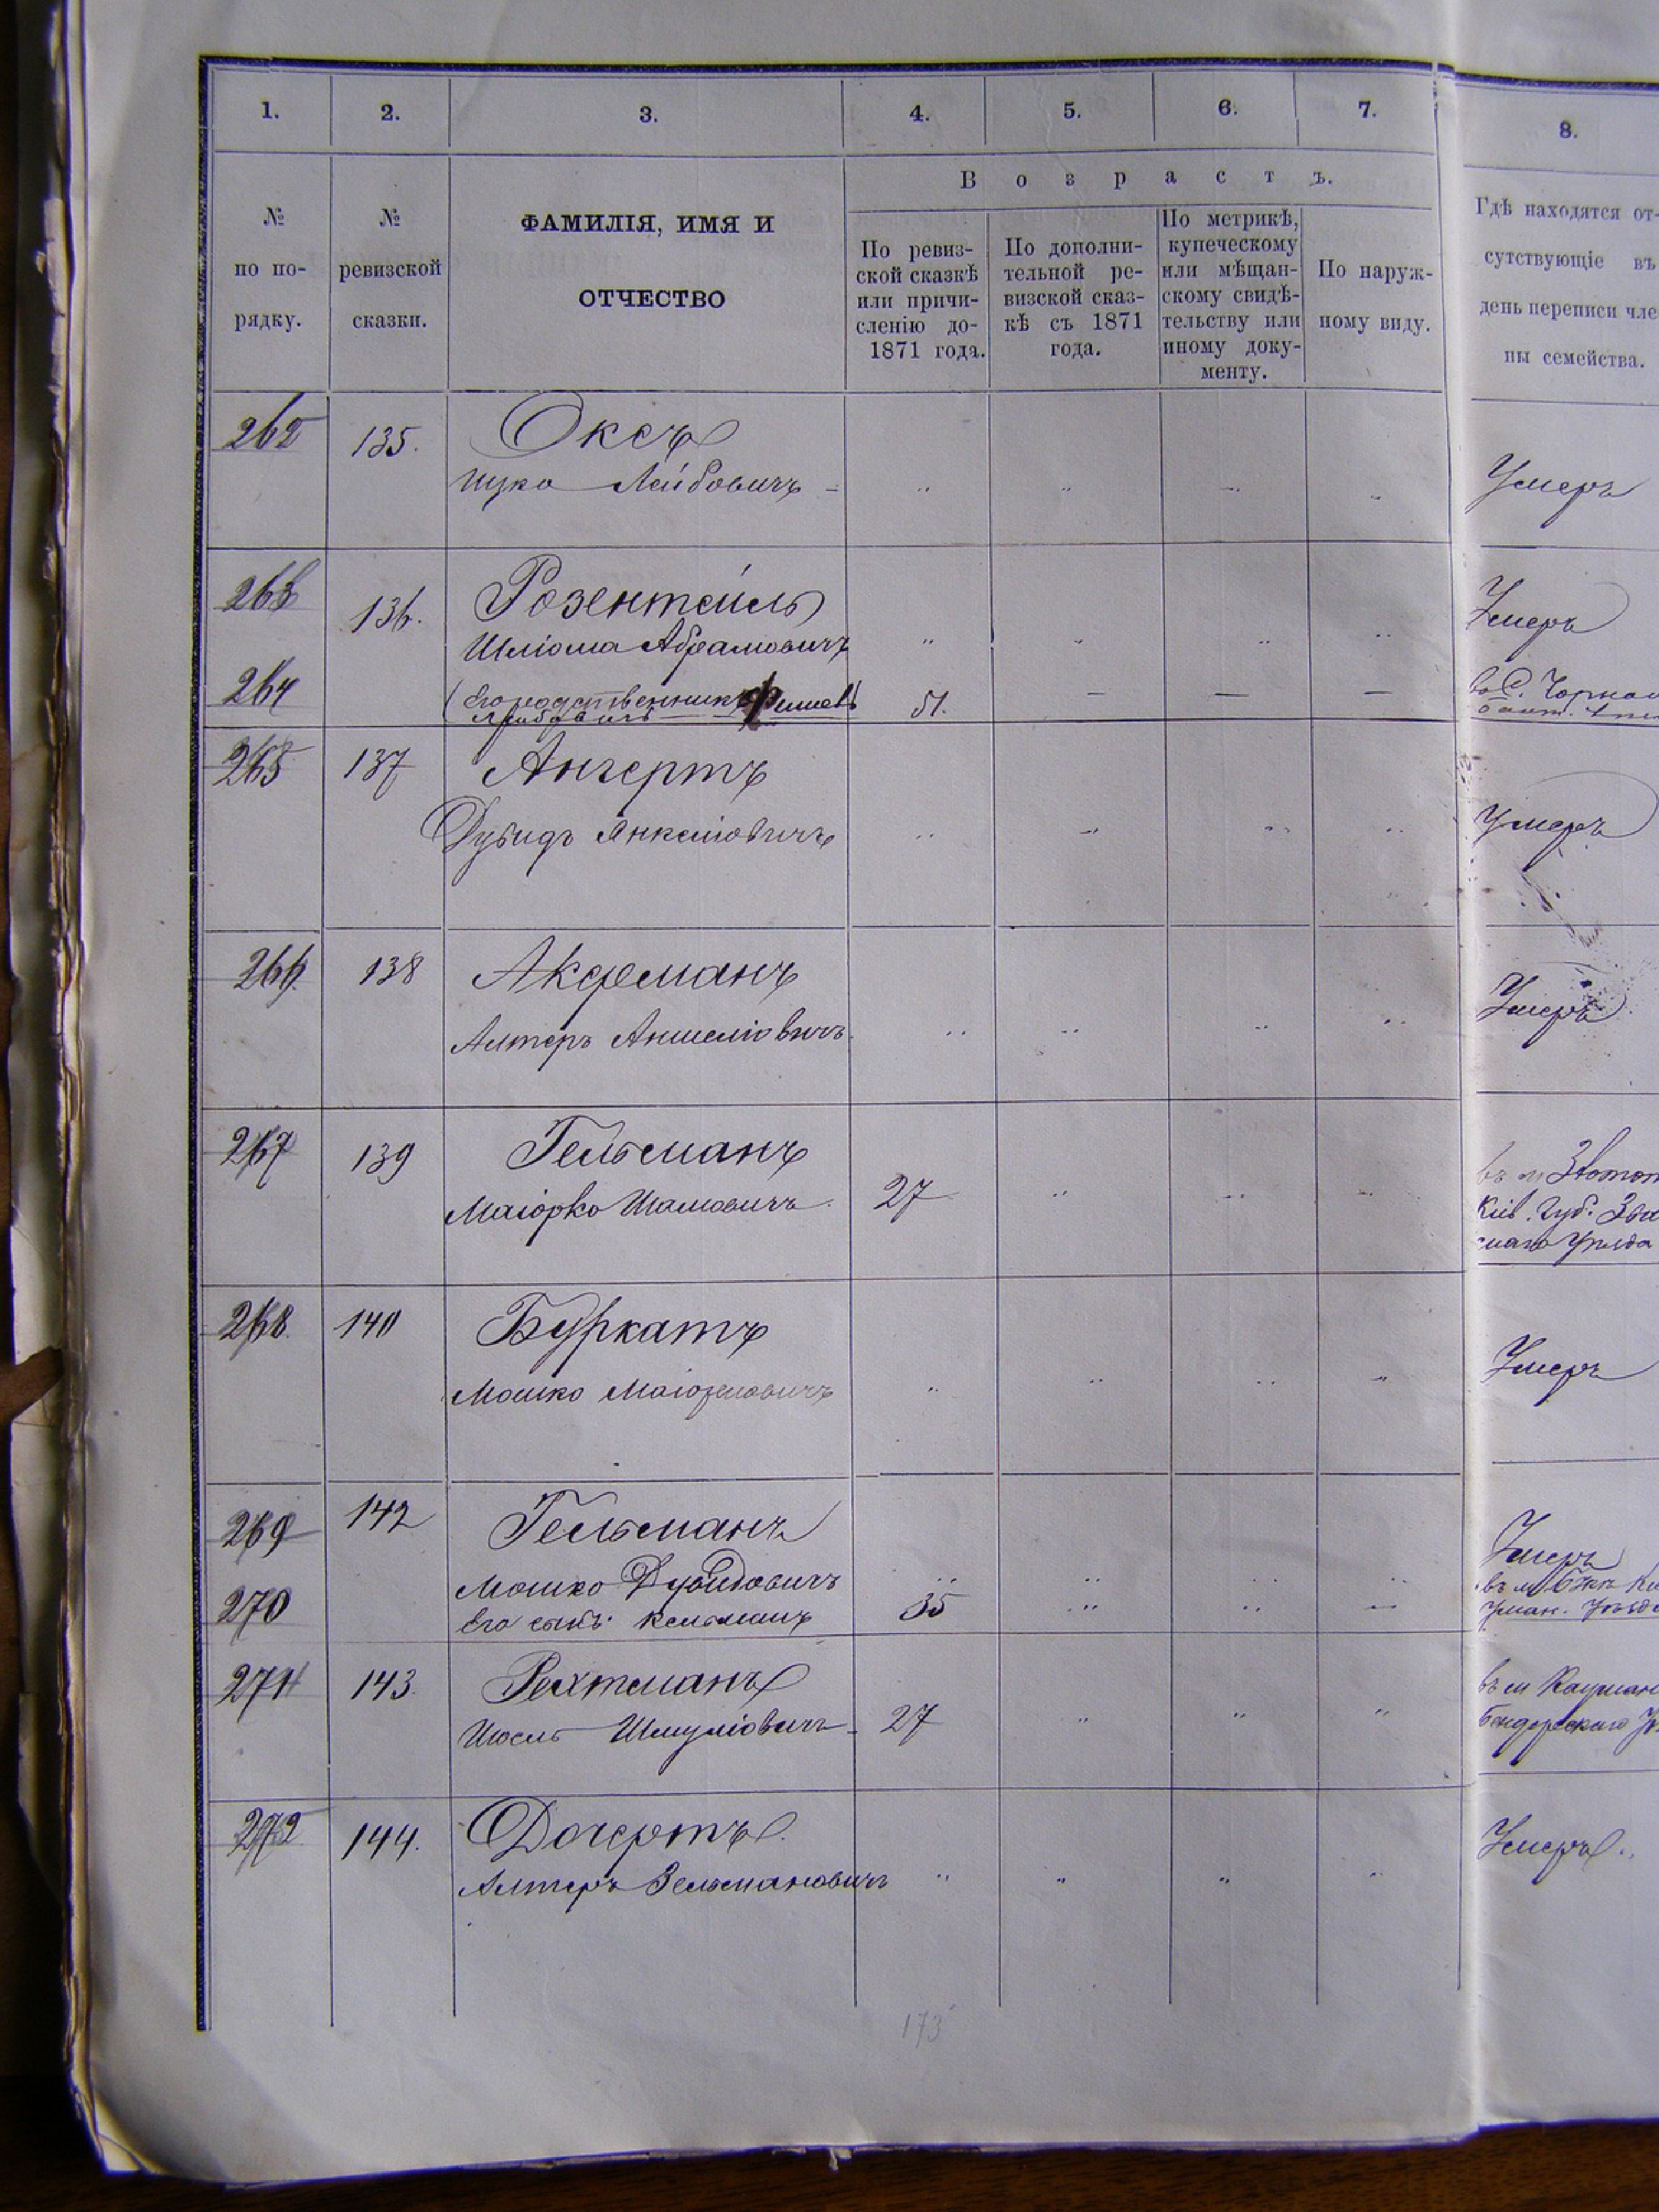 1. 2. 3. 4. 5. 6. 7. 8.
Возрастъ.
№ по по-
рядку.
№
ревизской
сказки.
ФАМИЛІЯ, ИМЯ И
ОТЧЕСТВО
По ревиз-
ской сказкѣ
или причи-
сленію до-
1871 года.
По дополни-
тельной ре-
визской сказ-
кѣ съ 1871
года.
По метрикѣ,
купеческому
или мѣщан-
скому свидѣ-
тельству или
иному доку-
менту.
По наруж-
ному виду.
Гдѣ находятся от-
сутствующіе въ
день переписи чле
ны семейства.
262 135. Оксъ
Ицко Лейбовичъ - " " " " Умеръ
263 136. Розентейль
Шліома Абрамовичъ " " " " Умеръ
264 (Его родственникъ 51. — — — въ С.
Лейбовичъ
265 137 Ангертъ
Дувидъ Янкеліовичъ " " " " Умеръ
266. 138 Акерманъ
Алтеръ Аншеліовичъ " " " " Умеръ
267 139 Гельманъ
Маіорко Шамовичъ 27 " " " въ м
Кіев. Губ.
скаго Уѣзда
268. 140 Буркатъ
Мошко " " " " Умеръ
269 142 Гельманъ Умеръ
Мошко Дувидовичъ " " " "
270 Его сынъ Кельманъ 35 " " " Уман. Уѣзда
271 143. Рехтманъ въ м Каушан
Иосль Шмуліовичъ - 27 " " " Бендерскаго Уѣ
272 144. Дочертъ Умеръ.
Алтеръ Зельмановичъ " " " "
173